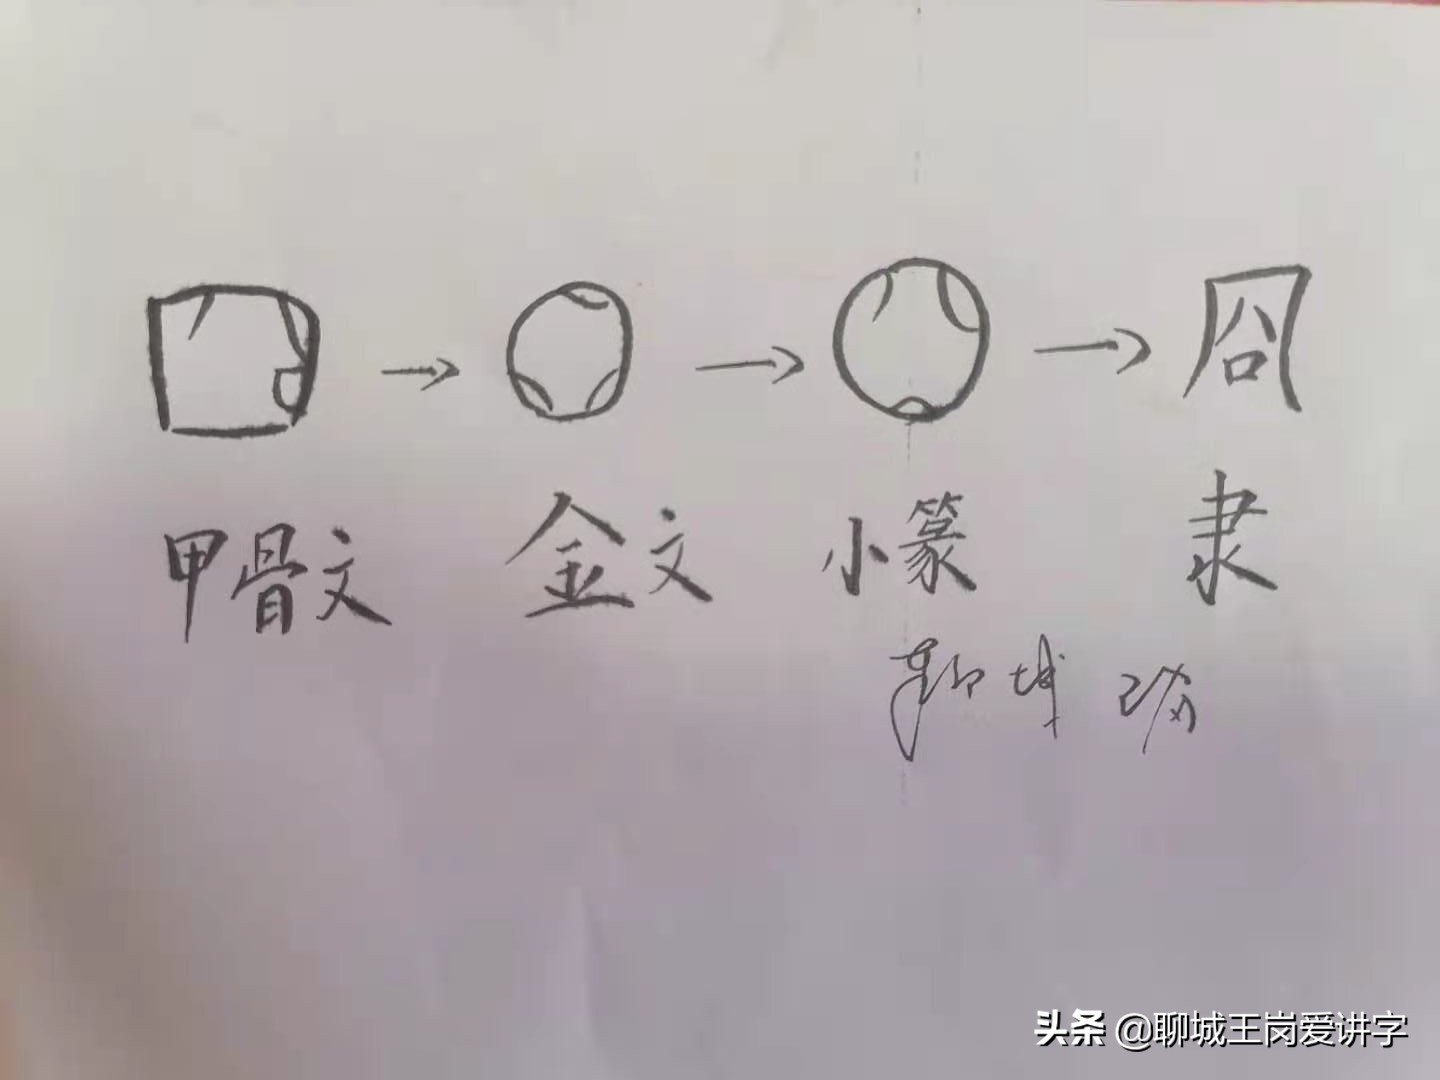 冏
甲骨文 金文 小篆 隶
聊城 王岗
头条 @聊城王岗爱讲字